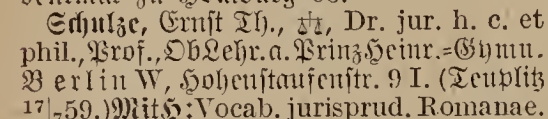 Schulze, Ernst Th., Dr. jur. h. c. et
phil., Prof., ObLehr. a. Prinz Heinr.=Gymn.
Berlin W, Hohenstaufenstr. 9 I. (Teuplitz
17/7 59.) MitH: Vocab. jurisprud. Romanae.